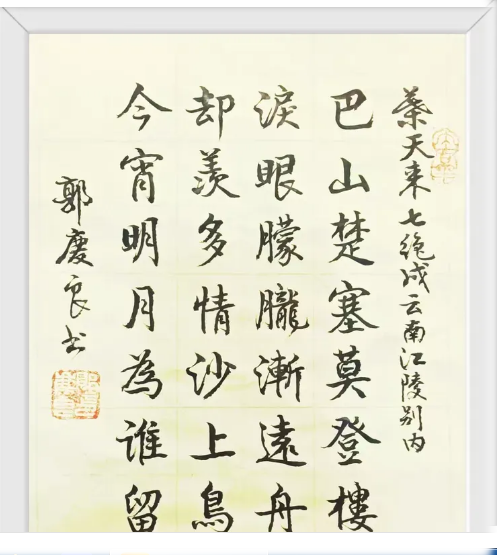 蔡天来七绝戍云南江陵别内
巴山楚塞莫登樓
淚眼朦朧漸遠舟
却羨多情沙上鳥
今宵明月為誰留
郭慶良书